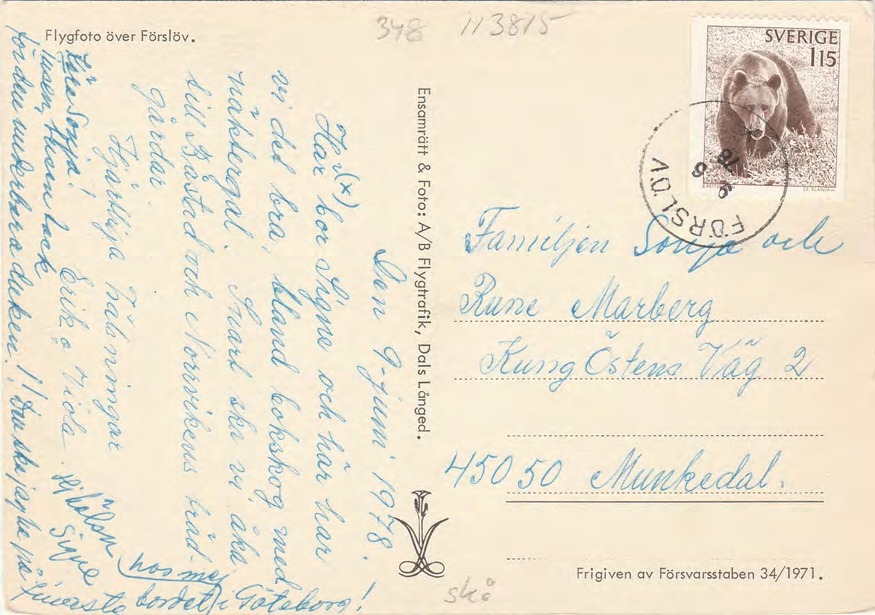 Flygfoto över Förslöv.
348 113815
SVERIGE
1 15
FÖRSLÖV
9 6
78
Den 9-juni 1978.
Hej (x)
Här bor Signe och här har
vi det bra, bland bokskog med
näktergal. Snart ska vi åka
till Båstad och Norrvikens träd-
gårdar.
Hjärtliga hälsningar
Erik o Viola.
Kära Sonja!
tusen, tusen tack
för den underbara duken!! Den ska jag ha på
finaste bordet i Göteborg!
hos mej
Ensamrätt & Foto: A/B Flygtrafik, Dals Långed.
Familjen Sonja och
Rune Marberg
Kung Östens Väg 2
45050 Munkedal.
Frigiven av Försvarsstaben 34/1971.